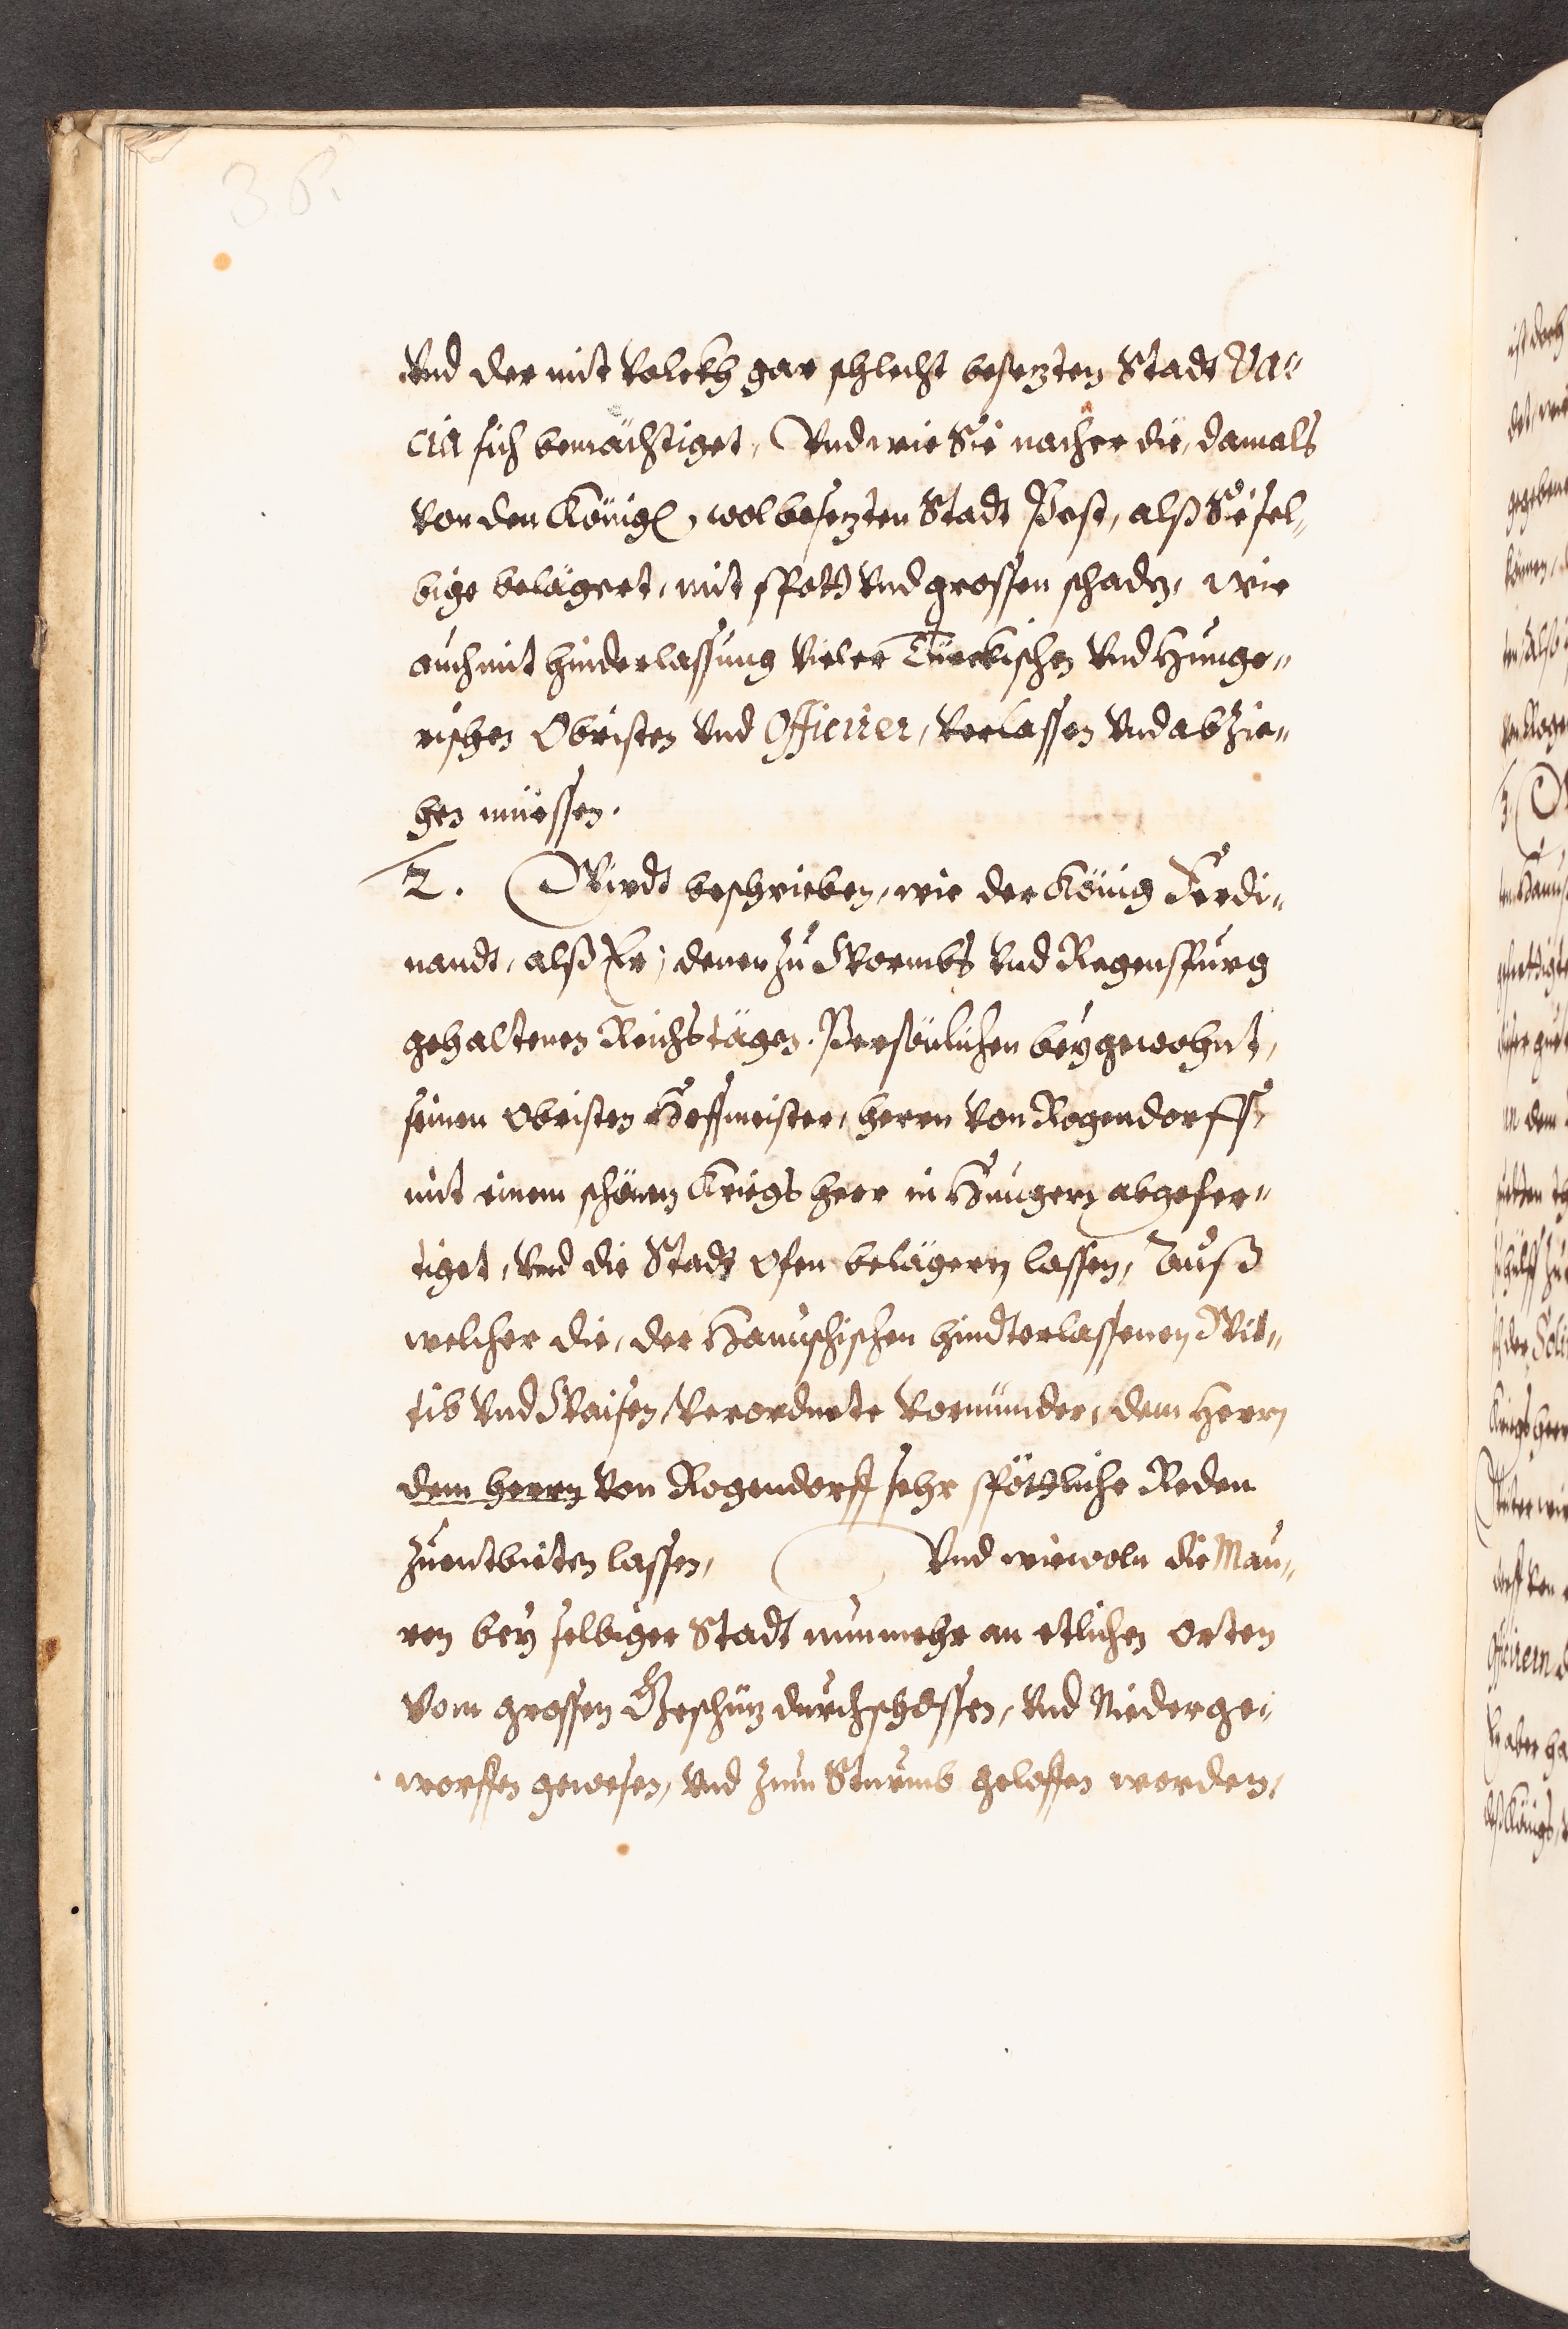 36.
Vnd der mit Volckh gar schlecht besezten Stadt Va„
cia sich bemächtiget, Vnd wie Sie nacher die, damals
von den Königl. wolbesezten Stadt Pest, alß Sie sel„
bige belägert, mit spott Vnd grossen schaden, wie
auch mit hinderlassung vieler Türckischen Vnd Hunge„
rischen Obristen Vnd Officirer, Verlassen Vnd abzie„
hen müessen.
2. Wirdt beschrieben, wie der König Ferdi„
nandt, alß Er, denen zu Wormbs Vnd Regenspurg
gehaltenen Reichstägen Persönlichen beygewohnt,
seinen Obristen Hoffmeister, Herrn von Rogendorff,
mit einem schönen Kriegs heer in Hungern abgefer„
tiget, Vnd die Stadt Ofen belägern lassen, Auß
welcher die, der Hanuschischen hindterlassenen Wit„
tib Vnd Waisen, Verordnete Vormünder, dem Herrn
dem Herrn von Rogendorff sehr spöttliche Reden
zuentbieten lassen, Vnd wiewoln die Mau„
ren bey selbiger Stadt nunmehr an etlichen Orten
vom grossen Geschüz durchschossen, Vnd Niderge„
worffen gewesen, Vnd zum Sturmb geloffen worden,